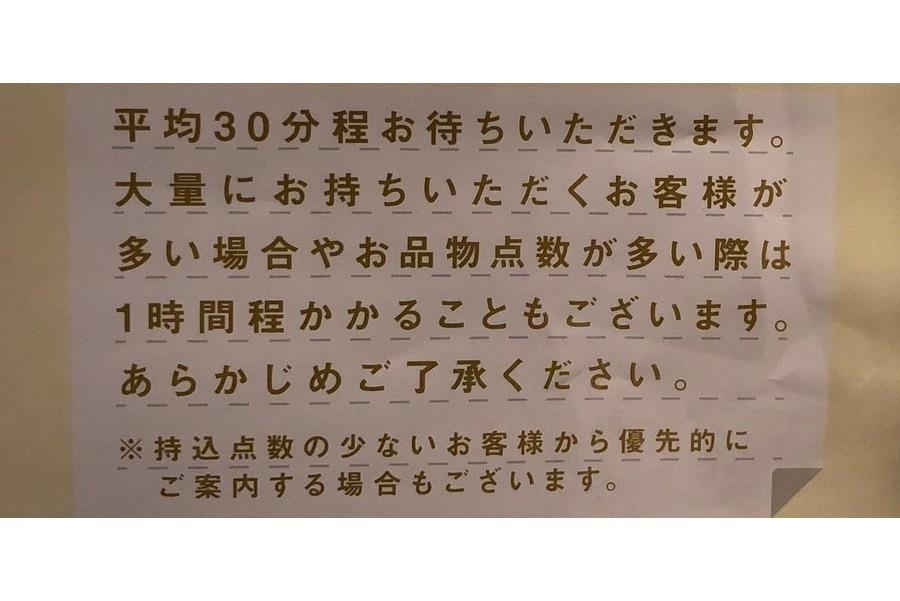 平均30分程お待ちいただきます。
大量にお持ちいただくお客様が
多い場合やお品物点数が多い際は
1時間程かかることもございます。
あらかじめご了承ください。
※持込点数の少ないお客様から優先的に
ご案内する場合もございます。